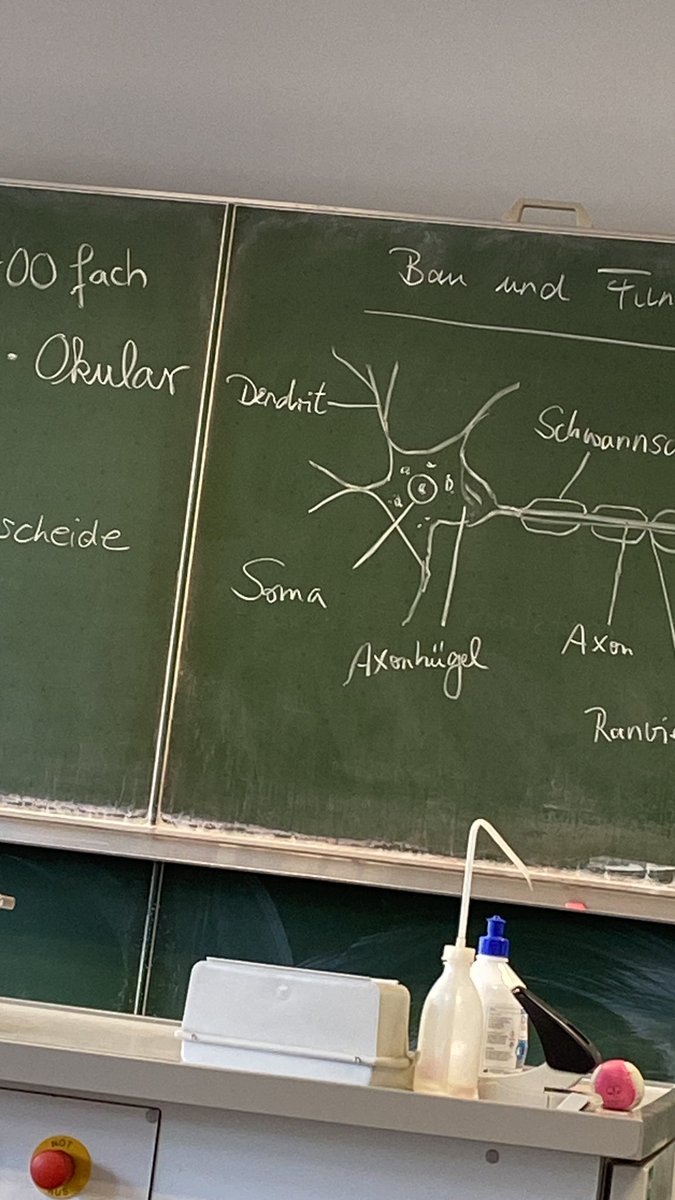 00 fach
· Okular
scheide
Bau und Fun
Dendrit
Schwannsc
Soma
Axonhügel
Axon
Ranvie
NOT
AUS